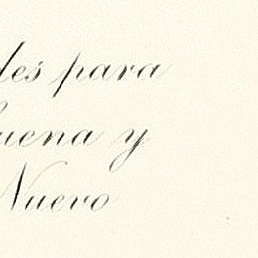 des para
uena y
Nuevo